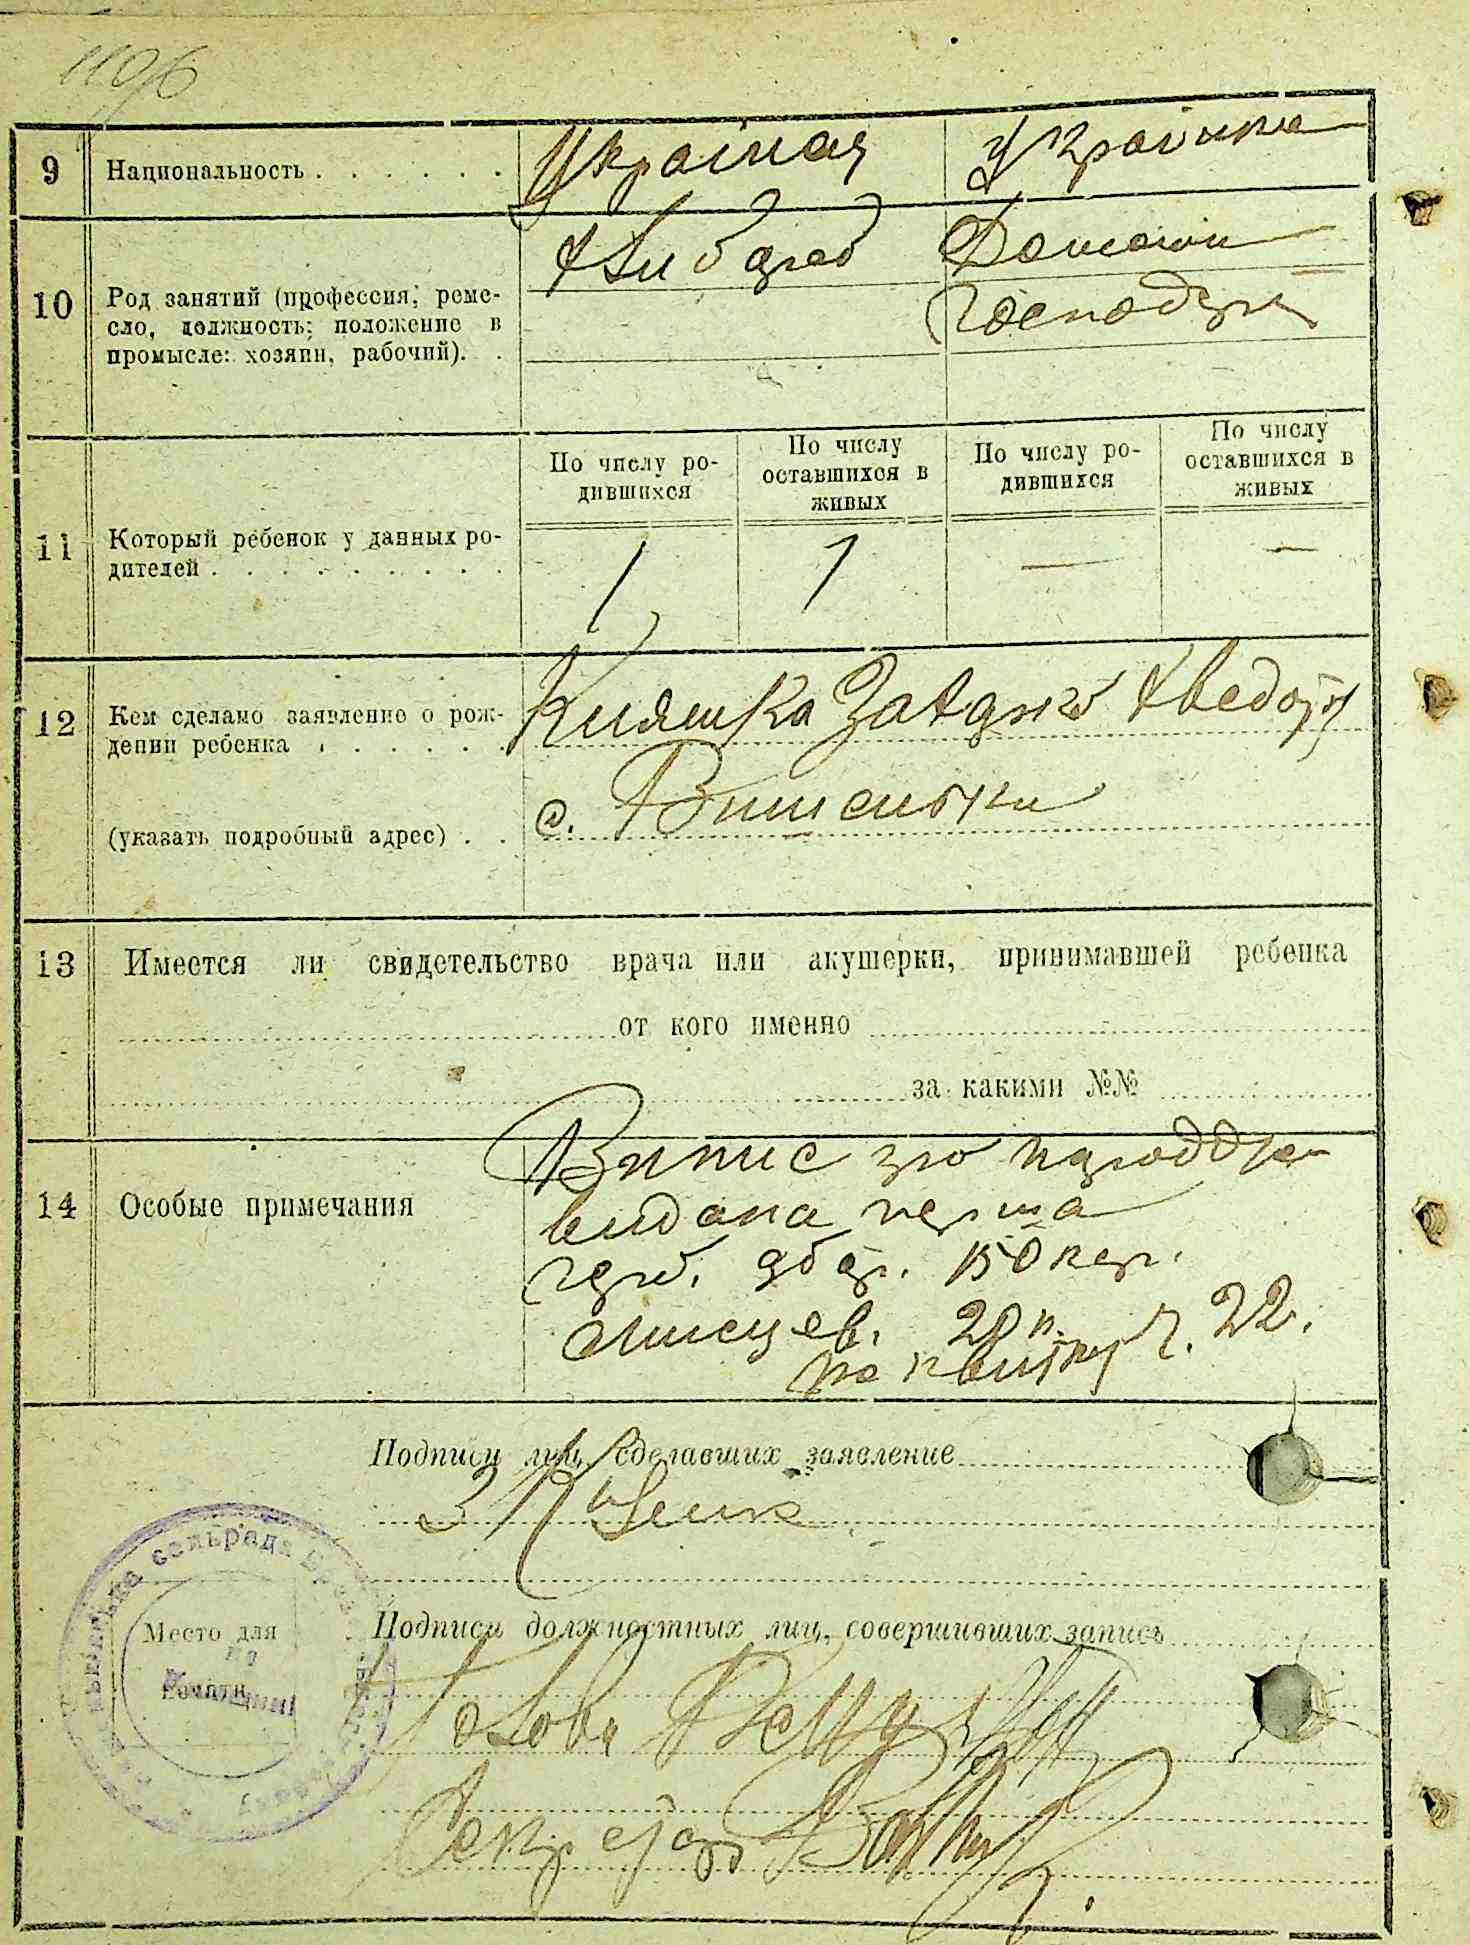 1196
9 Национальность . . . . . . Українец Українка
10 Род занятий (профессия, реме-
сло, должность; положение в
промысле: хозяин, рабочий). .
Хлибороб Домашн
господар
11 Который ребенок у данных ро-
дителей . . . . . . . . .
По числу ро-
дившихся
По числу
оставшихся в
живых
По числу ро-
дившихся
По числу
оставшихся в
живых
1 1 — —
12 Кем сделано заявление о рож-
дении ребенка . . . . . .
Княшка
(указать подробный адрес) . .
с. Вишеньки
13 Имеется ли свидетельство врача или акушерки, принимавшей ребенка
от кого именно
за какими №№
14 Особые примечания
Випис про народдже
видана перша
герб. збор. 150 кар.
місцев. 20 к.
по квитку ч. 22.
Подписи лиц, сделавших заявление
Место для
печати
сельрада
Подписи должностных лиц, совершивших запись
Голова
Секретарь